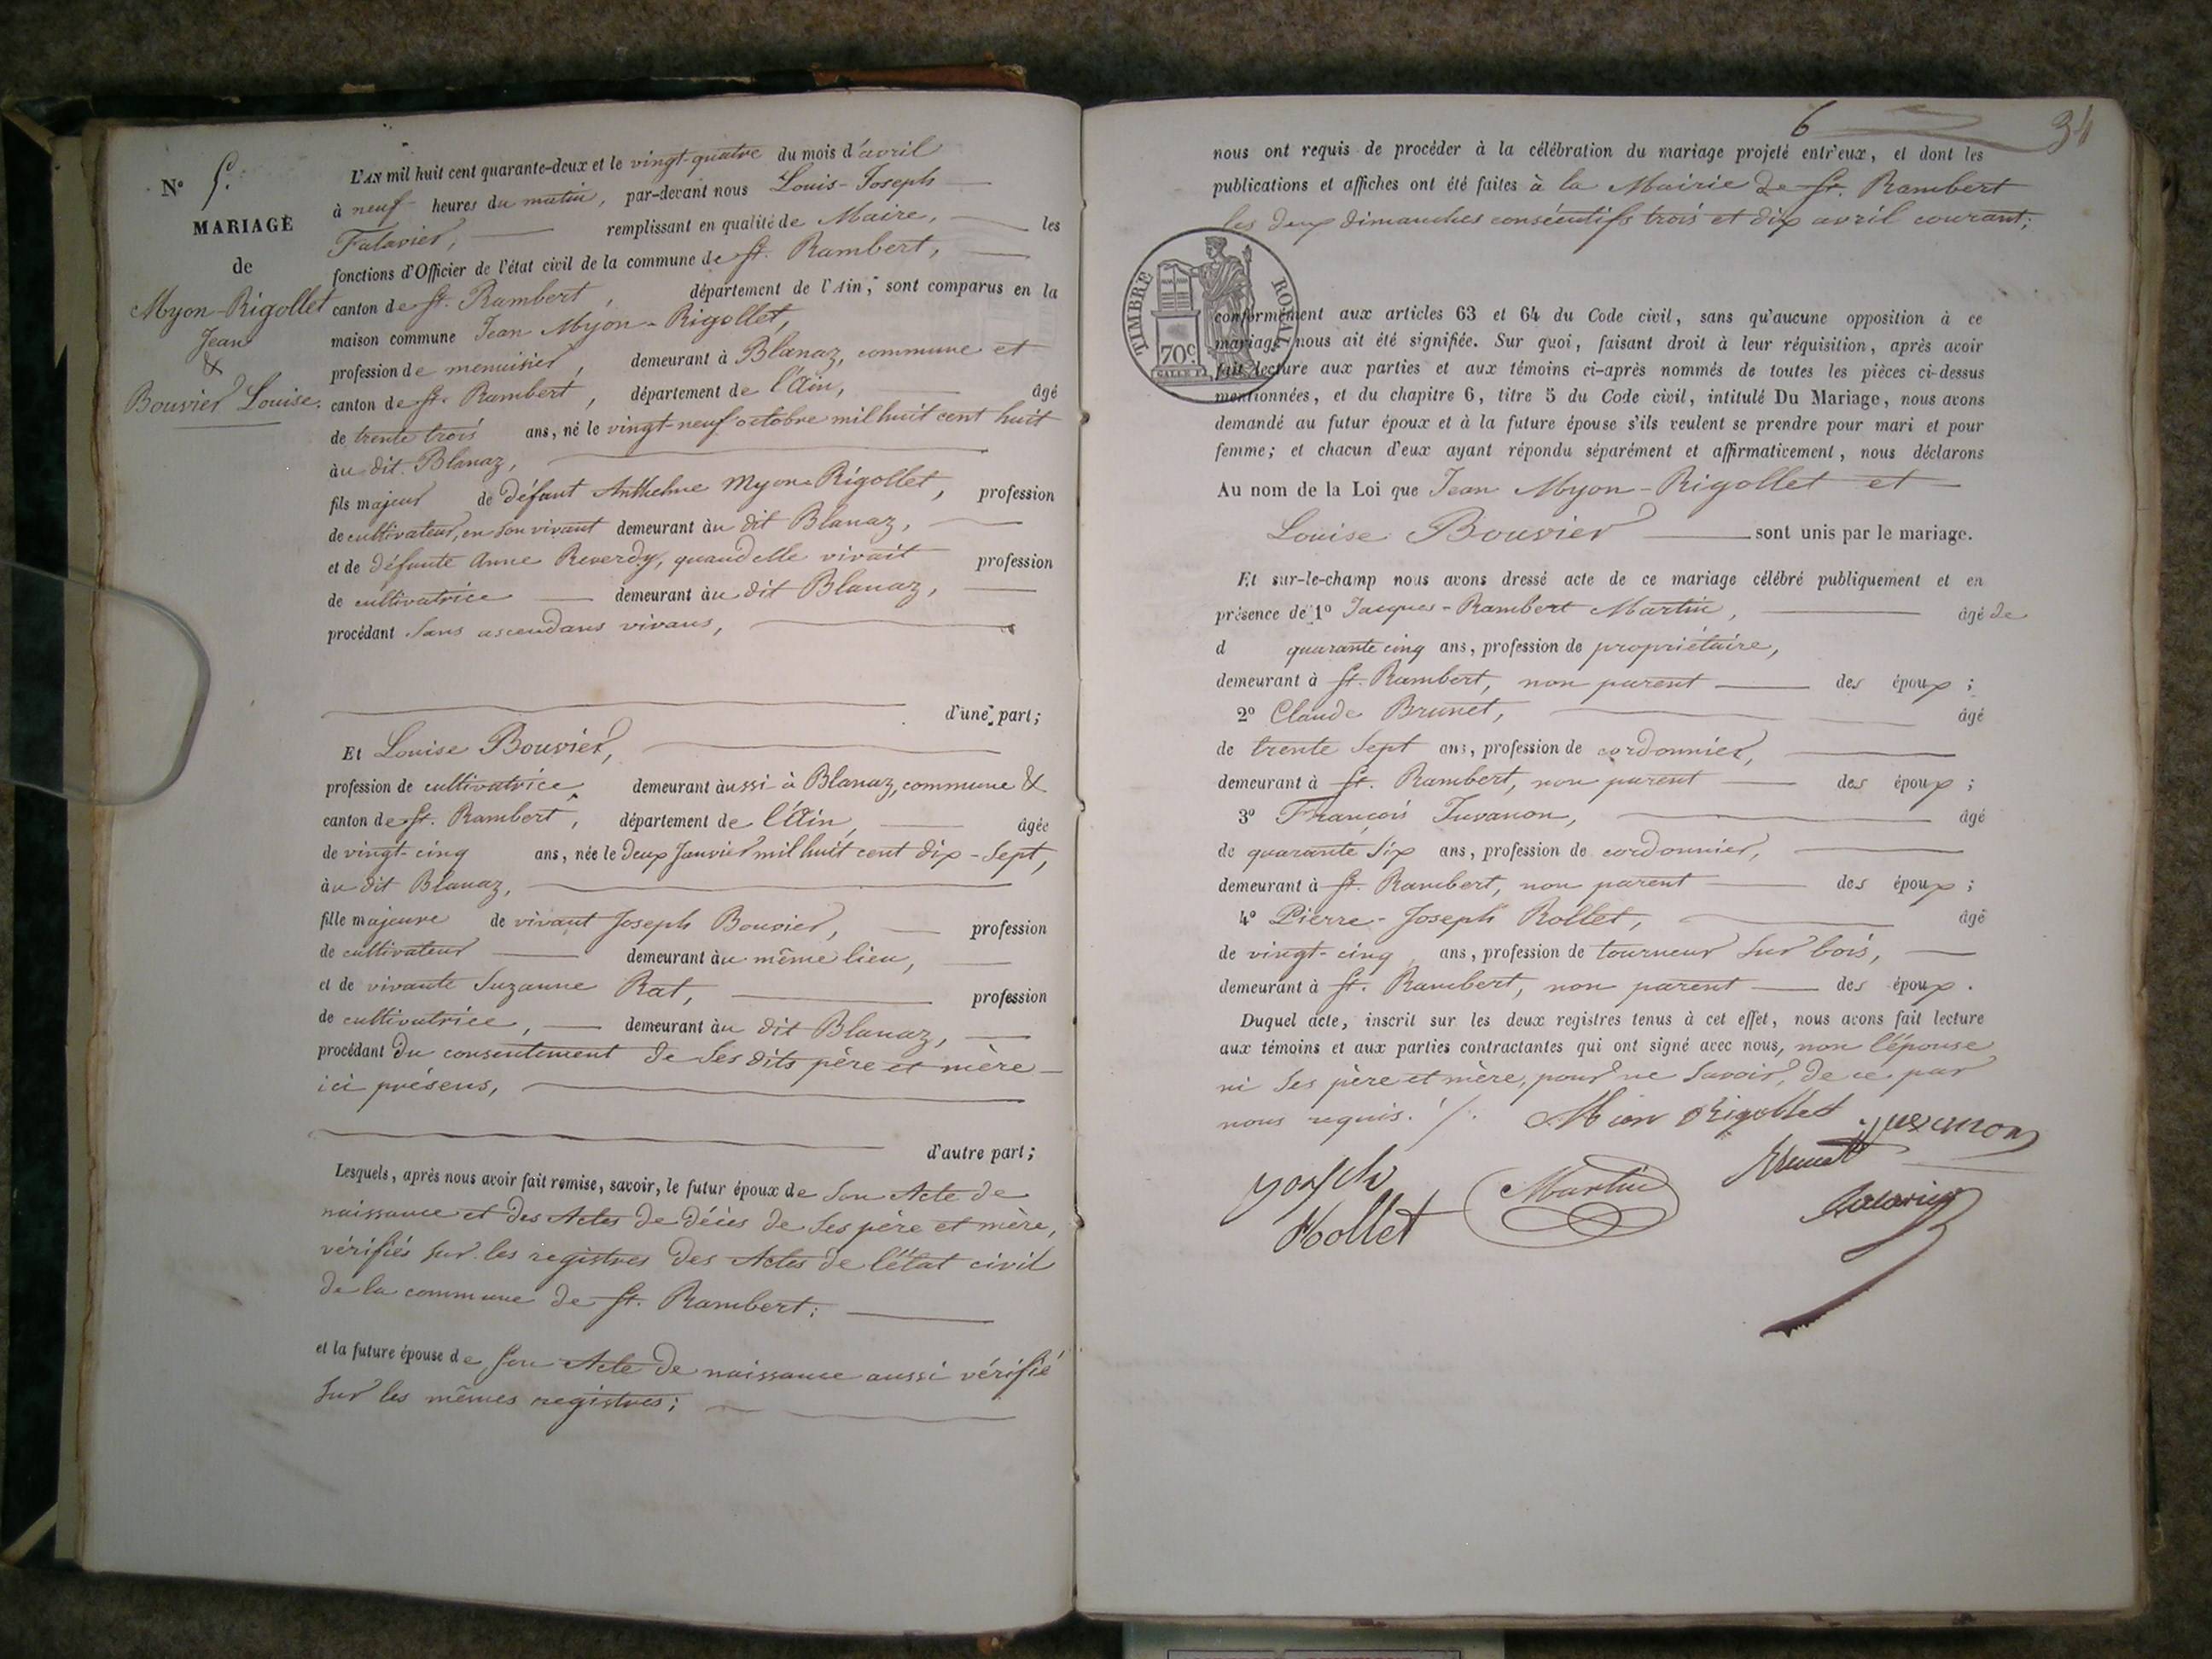 N° 5.
MARIAGE
de
Myon-Rigollet
Jean
&
Bouvier Louise.
L'AN mil huit cent quarante-deux et le vingt-quatre du mois d'avril
à neuf heures du matin, par-devant nous Louis-Joseph
Falavier, remplissant en qualité de Maire, les
fonctions d'Officier de l'état civil de la commune de St. Rambert,
canton de St. Rambert, département de l'Ain, sont comparus en la
maison commune Jean Myon-Rigollet,
profession de menuisier, demeurant à Blanaz, commune et
canton de St. Rambert, département de l'Ain, âgé
de trente trois ans, né le vingt-neuf octobre mil huit cent huit
àu dit Blanaz,
fils majeur de défunt Anthelme Myon-Rigollet, profession
de cultivateur, en son vivant demeurant àu dit Blanaz,
et de défunte Anne Reverdy, quand elle vivait profession
de cultivatrice demeurant àu dit Blanaz,
procédant sans ascendans vivans,
d'une part;
Et Louise Bouvier,
profession de cultivatrice demeurant àussi à Blanaz, commune &
canton de St. Rambert, département de l'Ain, âgée
de vingt-cinq ans, née le deux Janvier mil huit cent dix-sept,
àu dit Blanaz,
fille majeure de vivant Joseph Bouvier, profession
de cultivateur demeurant àu même lieu,
et de vivante Suzanne Rat, profession
de cultivatrice, demeurant àu dit Blanaz,
procédant du consentement de ses dits père et mère
ici présens,
d'autre part;
Lesquels, après nous avoir fait remise, savoir, le futur époux de son Acte de
naissance et des Actes de décès de ses père et mère,
vérifiés sur les registres des Actes de l'état civil
de la commune de St. Rambert;
et la future épouse de son Acte de naissance aussi vérifié
sur les mêmes registres;
6
34
nous ont requis de procéder à la célébration du mariage projeté entr'eux, et dont les
publications et affiches ont été faites à la Mairie de St. Rambert
les deux dimanches consécutifs trois et dix avril courant;
TIMBRE ROYAL
70c
conformément aux articles 63 et 64 du Code civil, sans qu'aucune opposition à ce
mariage nous ait été signifiée. Sur quoi, faisant droit à leur réquisition, après avoir
fait lecture aux parties et aux témoins ci-après nommés de toutes les pièces ci-dessus
mentionnées, et du chapitre 6, titre 5 du Code civil, intitulé Du Mariage, nous avons
demandé au futur époux et à la future épouse s'ils veulent se prendre pour mari et pour
femme; et chacun d'eux ayant répondu séparément et affirmativement, nous déclarons
Au nom de la Loi que Jean Myon-Rigollet et
Louise Bouvier sont unis par le mariage.
Et sur-le-champ nous avons dressé acte de ce mariage célébré publiquement et en
présence de 1° Jacques-Rambert Martin, âgé de
d quarante cinq ans, profession de propriétaire,
demeurant à St. Rambert, non parent des époux;
2° Claude Brunet, âgé
de trente sept ans, profession de cordonnier,
demeurant à St. Rambert, non parent des époux;
3° François Juvanon, âgé
de quarante six ans, profession de cordonnier,
demeurant à St. Rambert, non parent des époux;
4° Pierre-Joseph Rollet, âgé
de vingt-cinq ans, profession de tourneur sur bois,
demeurant à St. Rambert, non parent des époux.
Duquel acte, inscrit sur les deux registres tenus à cet effet, nous avons fait lecture
aux témoins et aux parties contractantes qui ont signé avec nous, non l'épouse
ni ses père et mère, pour ne savoir, de ce par
nous requis. Mion Rigollet
Brunet
Martin
Rollet
Falavier